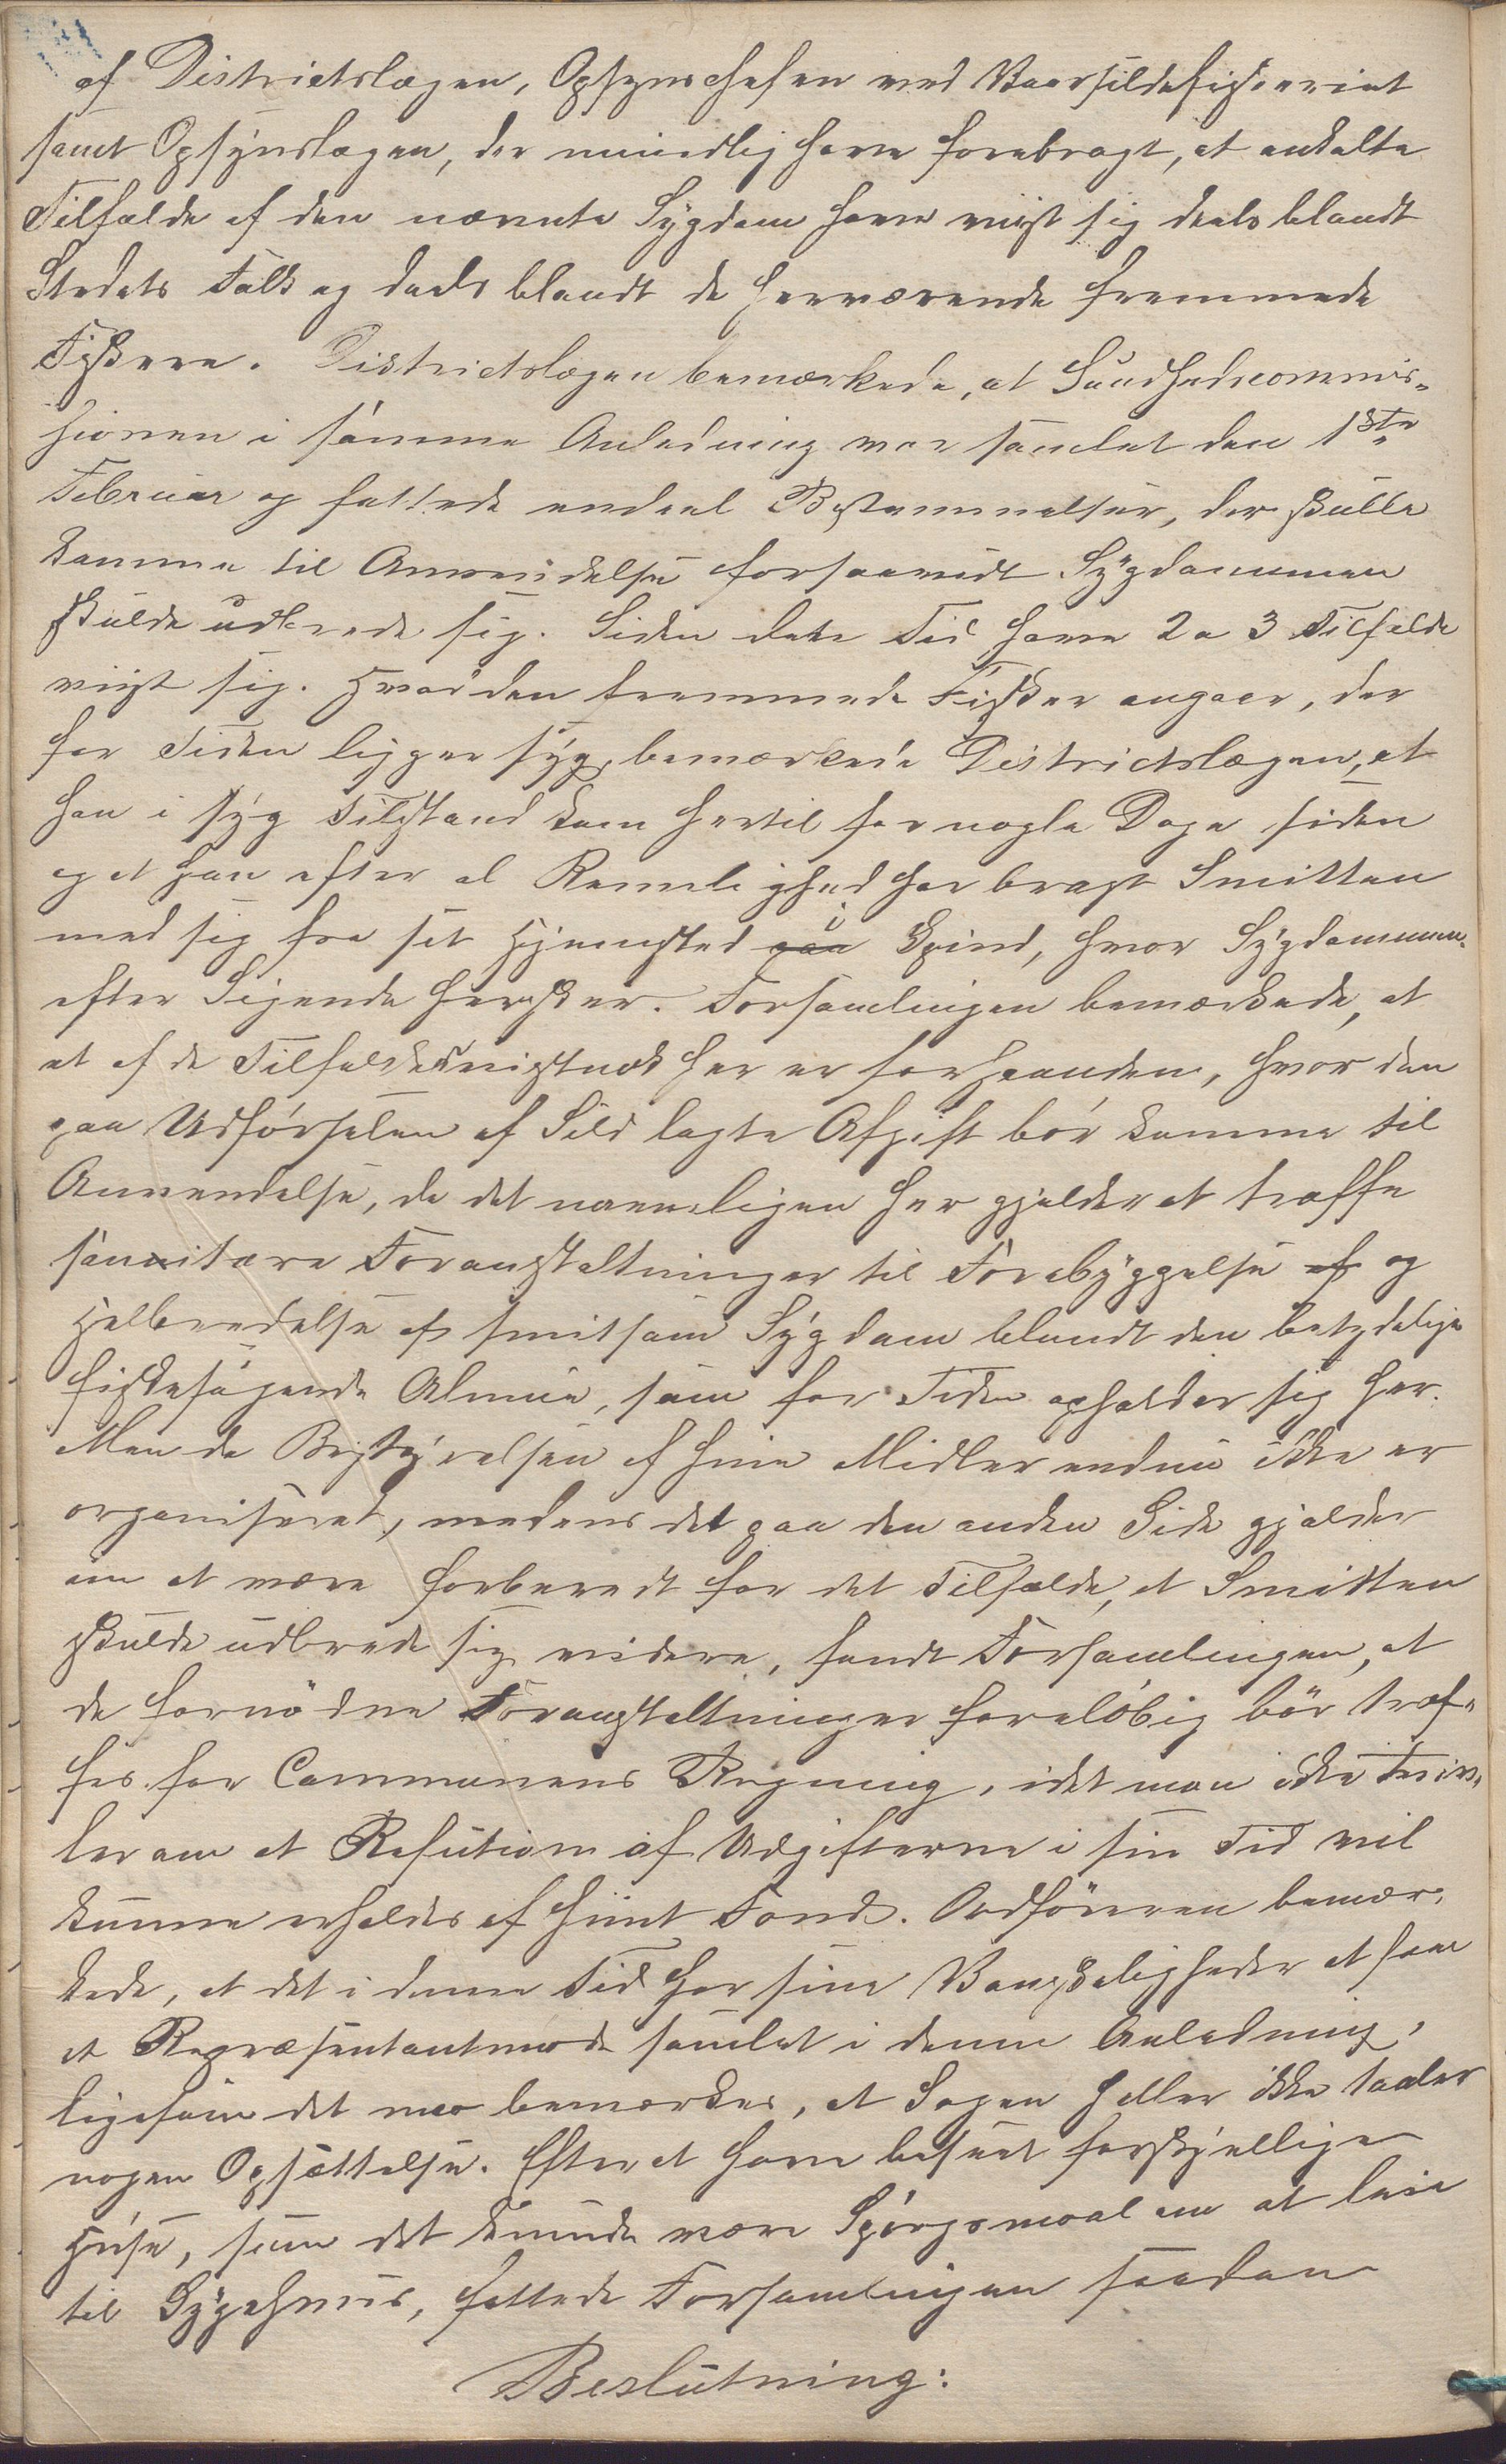 af Districtslægen, Opsynschefen ved Vaarsildefiskeriet
samt Opsynslægen, der mundtlig have forebragt, at enkelte
Tilfælde af den nævnte Sygdom have viist sig deels blandt
Stedets Folk og deels blandt de herværende fremmede
Fiskere. Districtslægen bemærkede, at Sundhedscommis-
sionen i samme Anledning var samlet den 1ste
Februar og fattede endeel Bestemmelser, der skulle
komme til Anvendelse forsaavidt Sygdommen
skulde udbrede sig. Siden dette Tid have 2 a 3 Tilfælde
viist sig. Hvad den fremmede Fisker angaar, der
for Tiden ligger syg, bemærkede Districtslægen, at
han i syg Tilstand kom hertil for nogle Dage siden
og at han efter al Rimelighed har bragt Smitten
med sig fra sit Hjemsted paa i Spind, hvor Sygdommen
efter Sigende hersker. Forsamlingen bemærkede, at
et af de Tilfælde vistnok her er forhaanden, hvor den
paa Udførselen af Sild lagte Afgift bør komme til
Anvendelse, da det nemligen her gjelder at træffe
sanitære Foranstaltninger til Forebyggelse af og
Helbredelse af smitsom Sygdom blandt den betydelige
fiskesøgende Almue, som for Tiden opholder sig her.
Men da Bestyrelsen af hine Midler endnu ikke er
organiseret, medens det paa den anden Side gjælder
om at være forberedt for det Tilfælde, at Smitten
skulde udbrede sig videre, fandt Forsamlingen, at
de fornødne Foranstaltninger foreløbig bør træf-
fes for Communens Regning, idet man ikke tviv-
ler om at Refusion af Udgifterne i sin Tid vil
kunne erholdes af hiint Fond. Ordføreren bemær-
kede, at det i denne Tid har sine Vanskeligheder at faae
et Repræsentantmøde samlet i denne Anledning,
ligesom det maa bemærkes, at Sagen heller ikke taaler
nogen Opsættelse. Efter at have beseet forskjellige
Huse, som det kunde være Spørgsmaal om at leie
til Sygehuus, fattede Forsamlingen saadan
Beslutning: